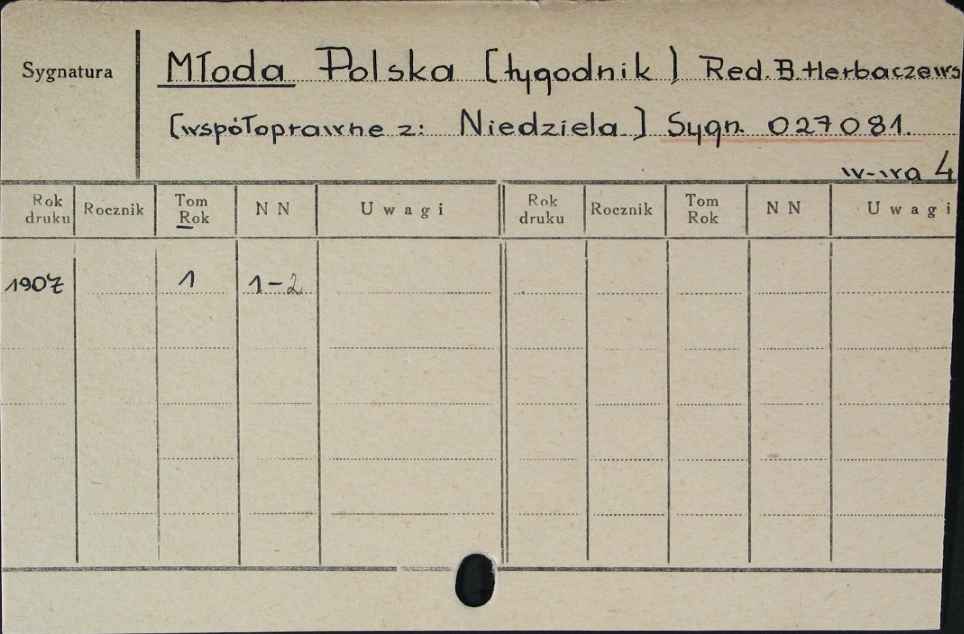 Sygnatura Młoda Polska [tygodnik] Red. B. Herbaczews
[współoprawne z: Niedziela] Sygn. 027081.
4
Rok druku Rocznik Tom Rok N N Uwagi Rok druku Rocznik Tom Rok N N Uwagi
1907 1 1-2